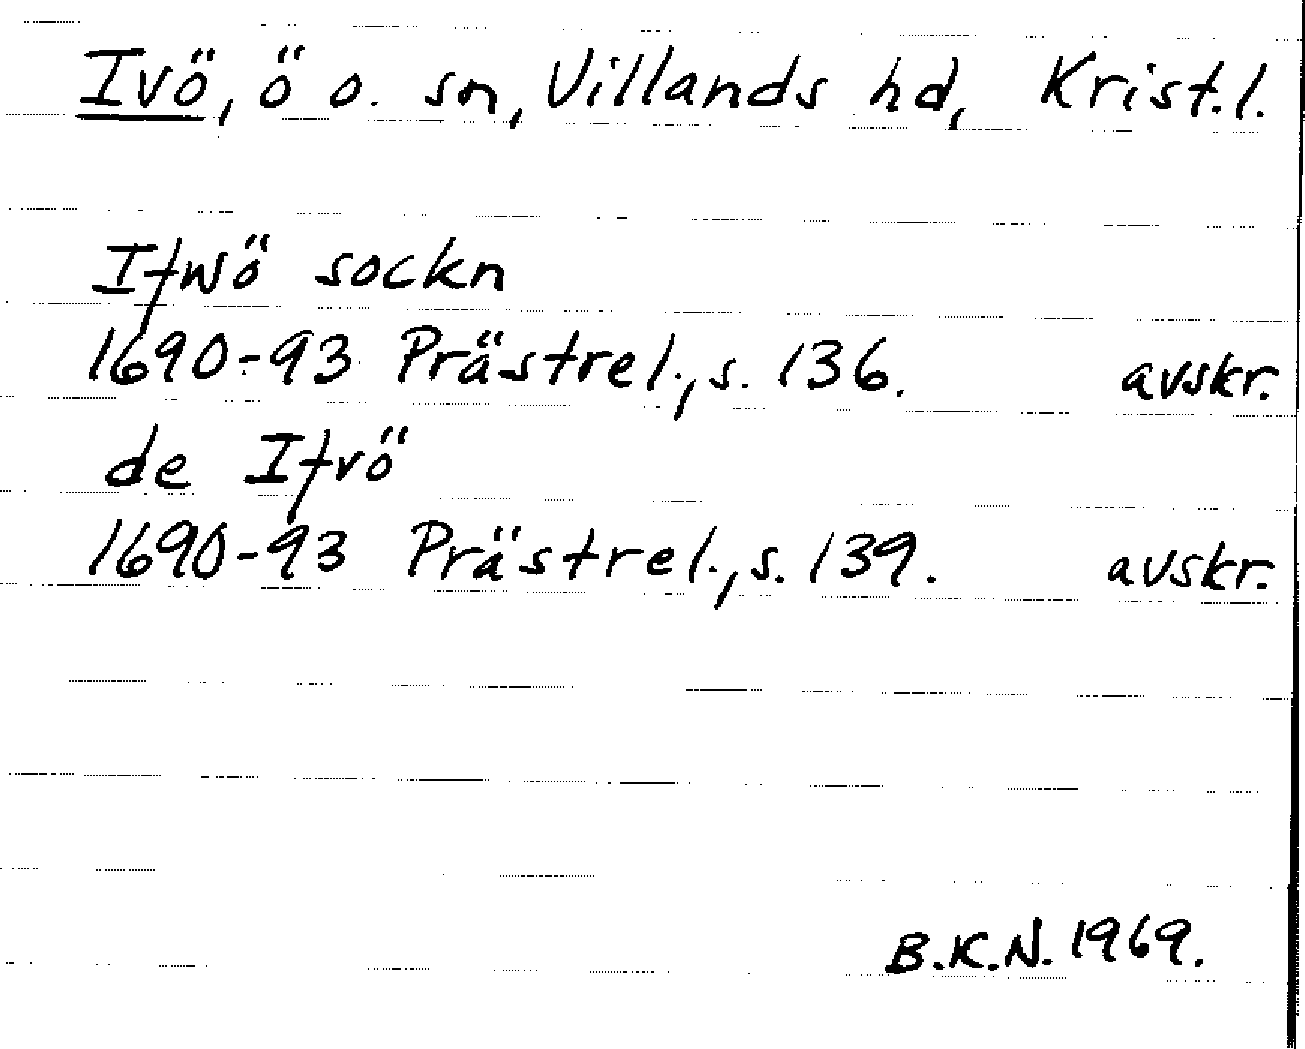 Ivö, ö o. sn, Villands hd, Krist.l.
Ifwö sockn
1690-93 Prästrel., s. 136. avskr.
de Ifvö
1690-93 Prästrel., s. 139. avskr.
B.K.N. 1969.